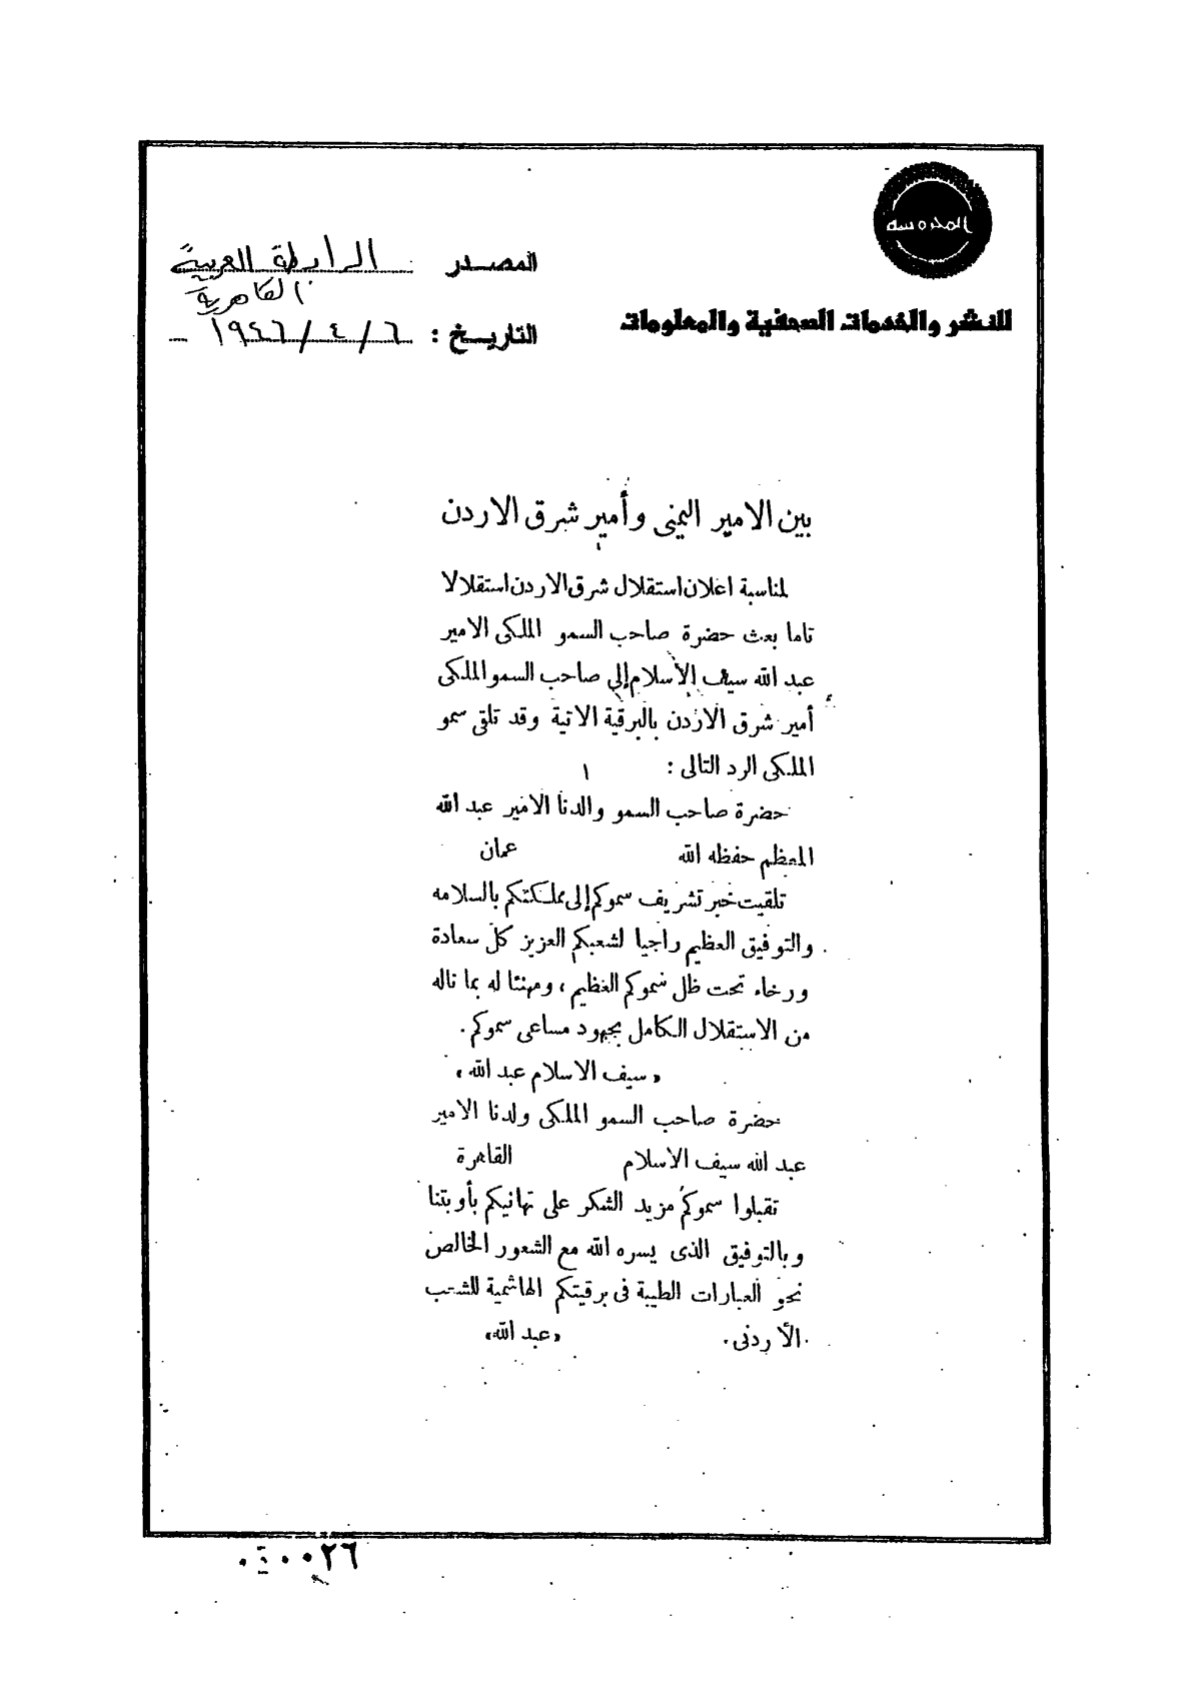 المحروسه
للنشر والخدمات الصحفية والمعلومات
المصدر الرابطة العربية
القاهرية
التاريخ : ٦ / ٤ / ١٩٤٦
بين الامير اليمنى وأمير شرق الاردن
لمناسبة اعلان استقلال شرق الاردن استقلالا
تاما بعث حضرة صاحب السمو الملكى الامير
عبد الله سيف الأسلام إلى صاحب السمو الملكى
أمير شرق الاردن بالبرقية الاتية وقد تلقى سمو
الملكى الرد التالى :
حضرة صاحب السمو والدنا الامير عبد الله
المعظم حفظه الله عمان
تلقيت خبر تشريف سموكم إلى مملكتكم بالسلامه
والتوفيق العظيم راجيا لشعبكم العزيز كل سعادة
ورخاء تحت ظل سموكم العظيم ، ومهنئا له بما ناله
من الاستقلال الكامل بجهود مساعى سموكم .
« سيف الاسلام عبد الله »
حضرة صاحب السمو الملكى ولدنا الامير
عبد الله سيف الاسلام القاهرة
تقبلوا سموكم مزيد الشكر على تهانيكم بأوبتنا
وبالتوفيق الذى يسره الله مع الشعور الخالص
نحو العبارات الطيبة فى برقيتكم الهاشمية للشعب
الأردنى . « عبد الله »